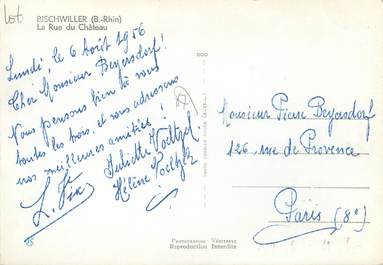 BISCHWILLER (B.-Rhin)
La Rue du Château
Lundi, le 6 Août 1956
Cher Monsieur Beyersdorf!
Nous pensons bien à vous
toutes les trois, et vous adressons
nos meilleures amitiés!
Juliette Voeltzel
Hélène Voeltzel
L.
Monsieur Pierre Beyersdorf
126, rue de Provence
Paris (8e)
Reproduction Interdite